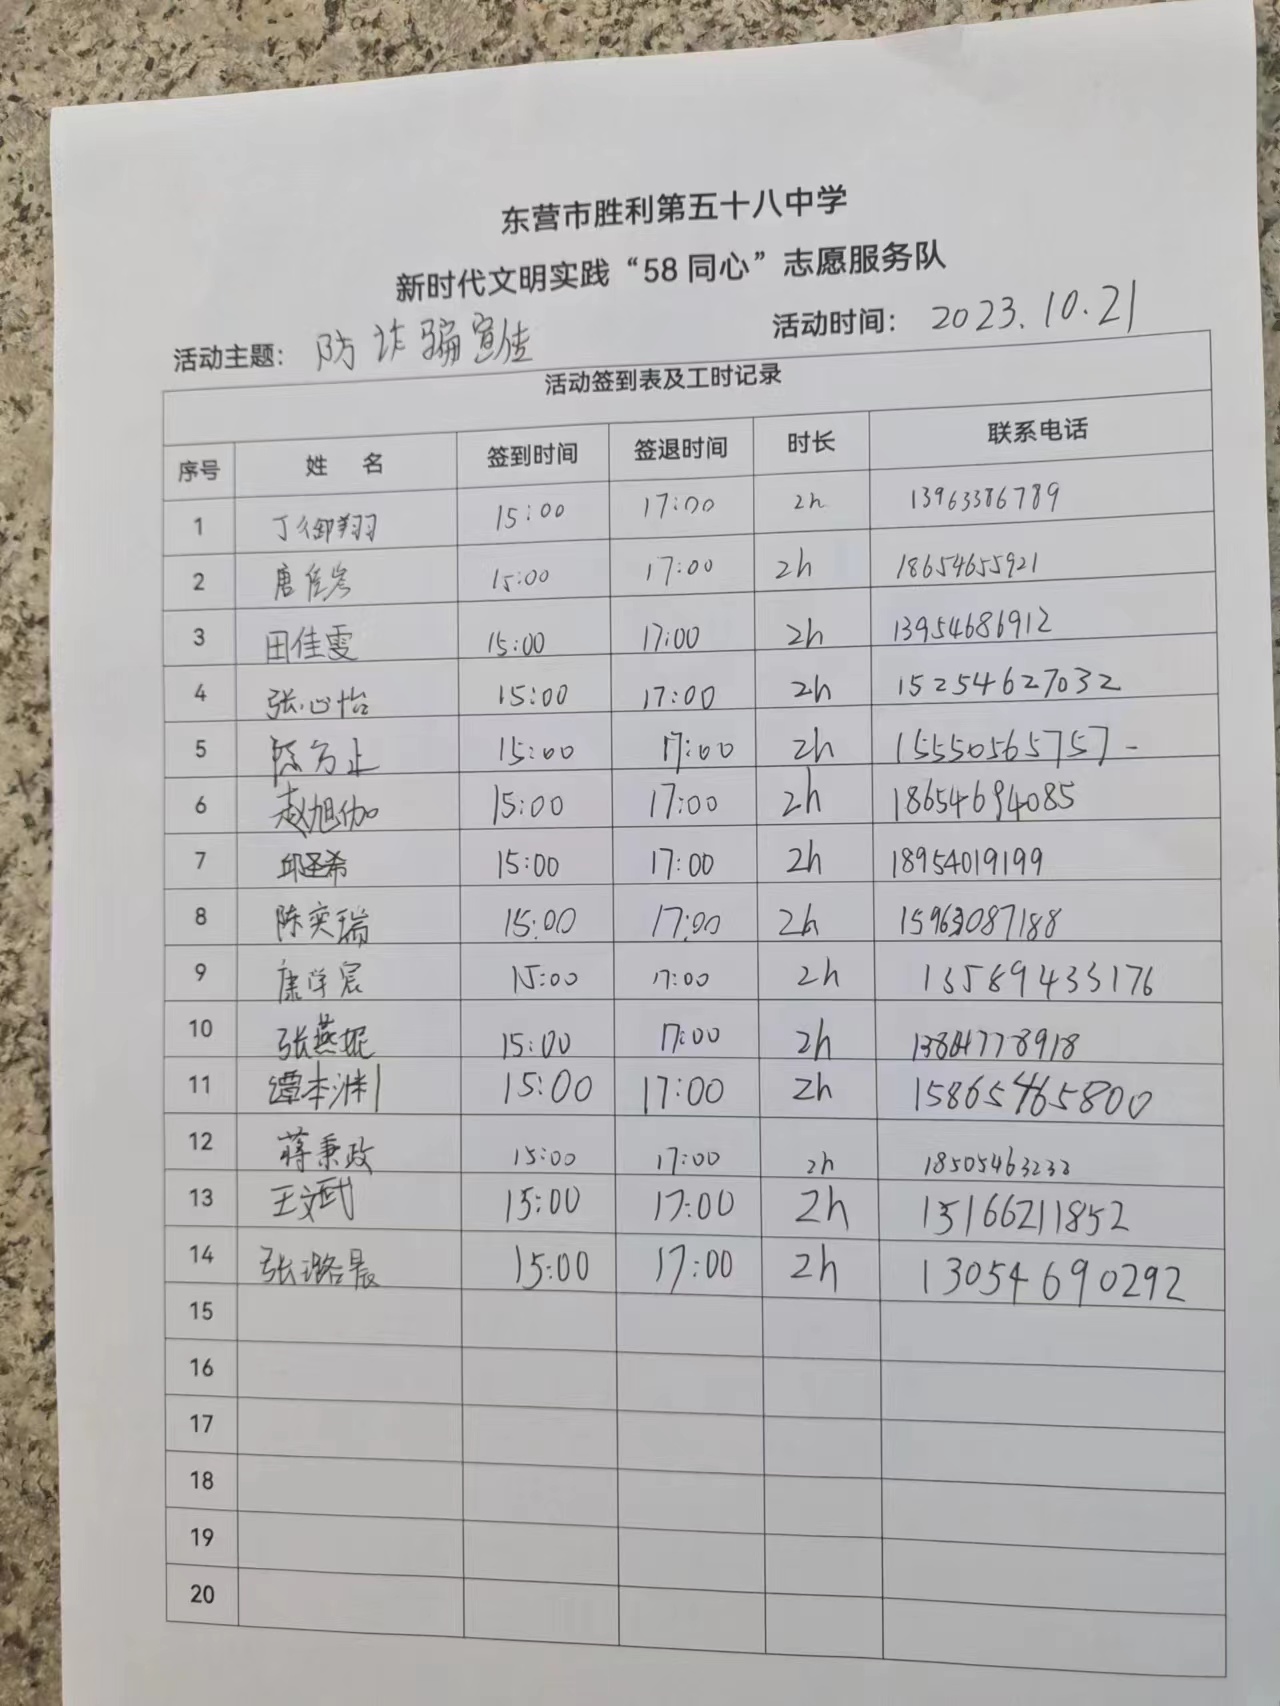 东营市胜利第五十八中学
新时代文明实践“58 同心”志愿服务队
活动主题： 防诈骗宣传 活动时间： 2023.10.21
活动签到表及工时记录
序号 姓 名 签到时间 签退时间 时长 联系电话
1 丁御翔 15:00 17:00 2h 13963386789
2 唐佳岩 15:00 17:00 2h 18654655921
3 田佳雯 15:00 17:00 2h 13954686912
4 张心怡 15:00 17:00 2h 15254627032
5 陈方止 15:00 17:00 2h 15550565757
6 赵旭伽 15:00 17:00 2h 18654694085
7 邱圣希 15:00 17:00 2h 18954019199
8 陈奕瑞 15:00 17:00 2h 15963087188
9 康学宸 15:00 17:00 2h 13589433176
10 张燕妮 15:00 17:00 2h
11 谭本洲 15:00 17:00 2h 15865465800
12 蒋秉政 15:00 17:00 2h 18505463232
13 王文武 15:00 17:00 2h 15166211852
14 张潞晨 15:00 17:00 2h 13054690292
15
16
17
18
19
20